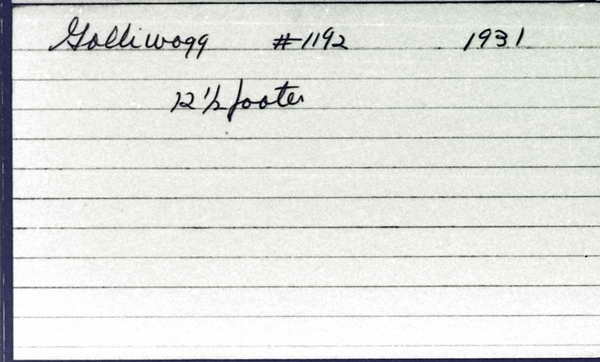 Golliwogg #1192 1931
12 1/2 footer